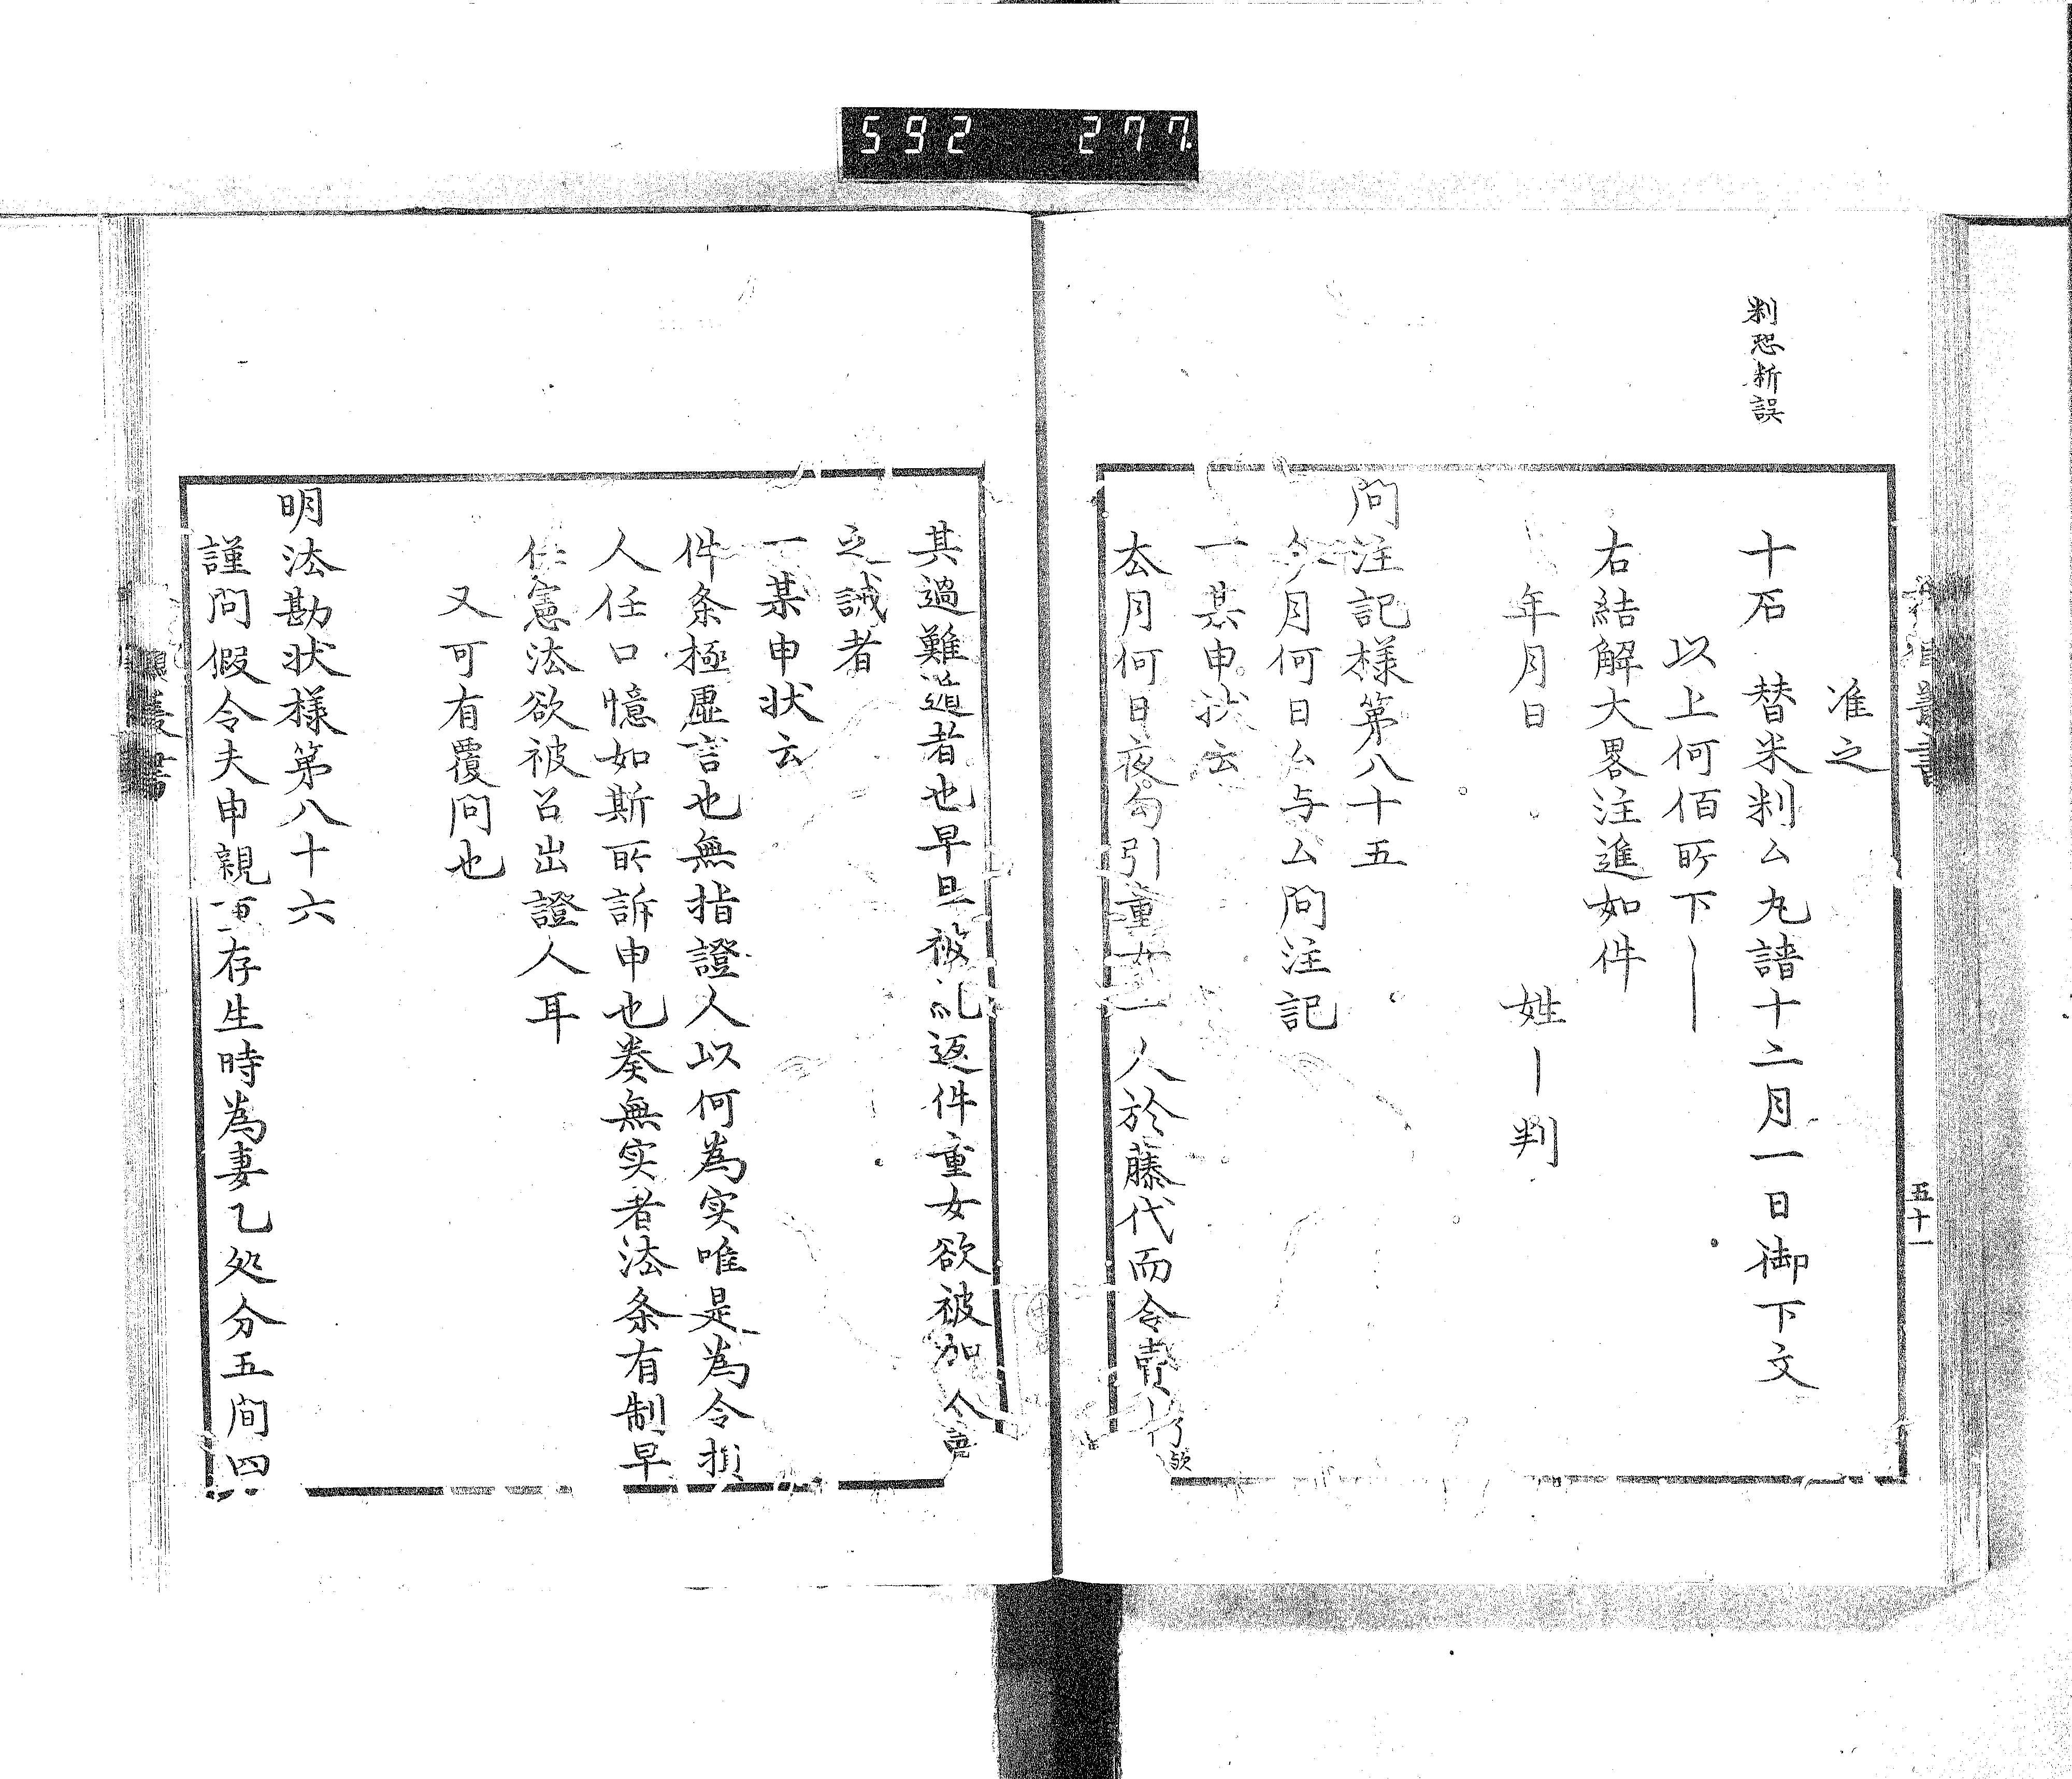 592 277
判恐断誤
准之
十石 替米判ム丸請十二月一日御下文
以上何佰所下―
右結解大畧注進如件
年月日 姓―判
問注記様第八十五
今月何日ム与ム問注記
一某申状云
厺月何日夜勾引童女一人於藤代而令賣
其過難遁者也早旦被糺返件童女欲被加人
之誡者
一某申状云
件条極虚言也無指證人以何為实唯是為令損
人任口憶如斯所訴申也奏無实者法条有制早
任憲法欲被召出證人耳
又可有覆問也
明法勘状様第八十六
謹問假令夫申親 存生時為妻乙処分五間四
五十一